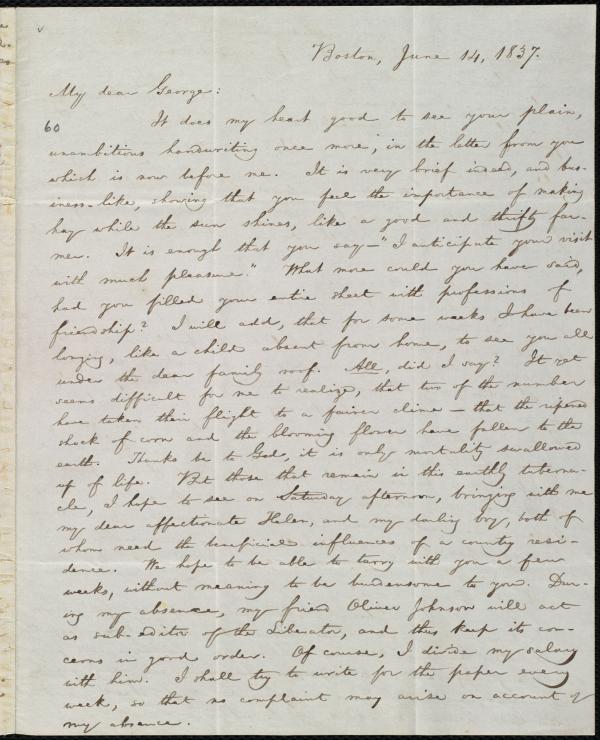 Boston, June 14, 1837.
My dear George:
60
It does my heart good to see your plain,
unambitious handwriting once more, in the letter from you
which is now before me. It is very brief indeed, and bus-
iness-like, showing that you feel the importance of making
hay while the sun shines, like a good and thrifty far-
mer. It is enough that you say—"I anticipate your visit
with much pleasure." What more could you have said,
had you filled your entire sheet with professions of
friendship? I will add, that for some weeks I have been
longing, like a child absent from home, to see you all
under the dear family roof. All, did I say? It yet
seems difficult for me to realize, that two of the number
have taken their flight to a fairer clime — that the ripened
shock of corn and the blooming flower have fallen to the
earth. Thanks be to God, it is only mortality swallowed
up of life. But those that remain in this earthly taberna-
cle, I hope to see on Saturday afternoon, bringing with me
my dear affectionate Helen, and my darling boy, both of
whom need the beneficial influences of a country resi-
dence. We hope to be able to tarry with you a few
weeks, without meaning to be burdensome to you. Dur-
ing my absence, my friend Oliver Johnson will act
as sub-editor of the Liberator, and thus keep its con-
cerns in good order. Of course, I divide my salary
with him. I shall try to write for the paper every
week, so that no complaint may arise on account of
my absence.